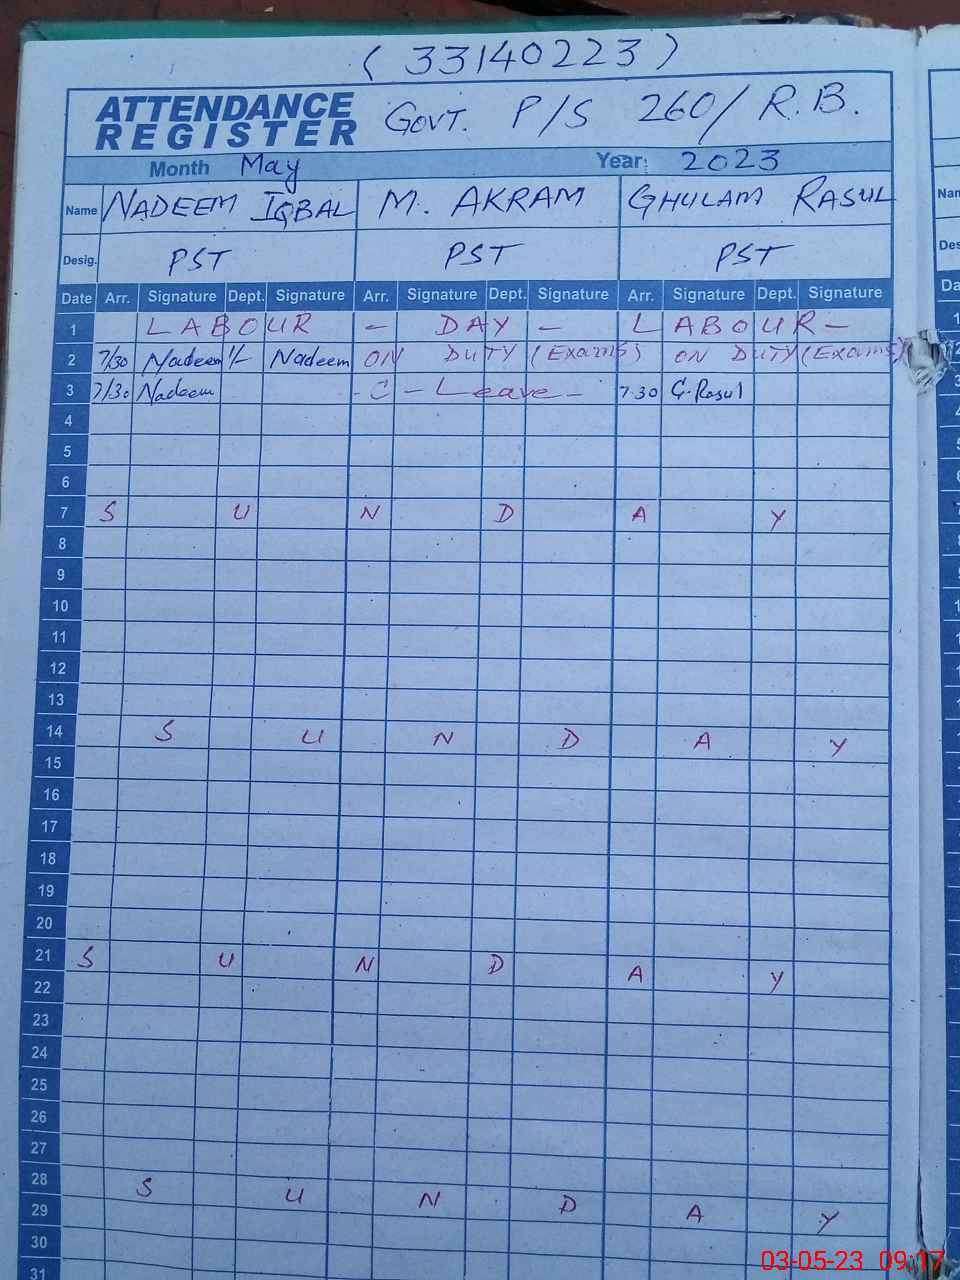 ( 33140223 )
ATTENDANCE REGISTER Govt. P/S 260/R.B.
Month May Year: 2023
Name NADEEM IQBAL M. AKRAM GHULAM RASUL
Desig. PST PST PST
Date Arr. Signature Dept. Signature Arr. Signature Dept. Signature Arr. Signature Dept. Signature
1 LABOUR - DAY - LABOUR -
2 7/30 Nadeem 1/- Nadeem ON DUTY (Exams) ON DUTY (Exams)
3 7/30 Nadeem - C - Leave - 7.30 G.Rasul
4
5
6
7 S U N D A Y
8
9
10
11
12
13
14 S U N D A Y
15
16
17
18
19
20
21 S U N D A Y
22
23
24
25
26
27
28 S U N D A Y
29
30
31
03-05-23 09:17